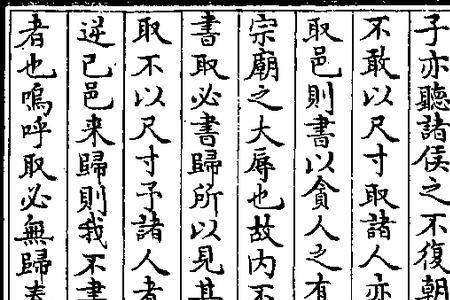 子亦聽諸侯之不復朝
不敢以尺寸取諸人亦
取邑則書以貪人之有
宗廟之大辱也故内不
書取必書歸所以見其
取不以尺寸予諸人者
逆已邑来歸則我不書
者也嗚呼取必無歸